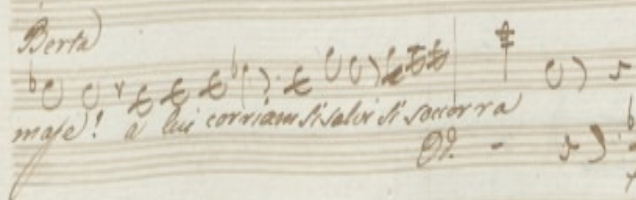 Berta
mase! a lui corriam si salvi si socorra